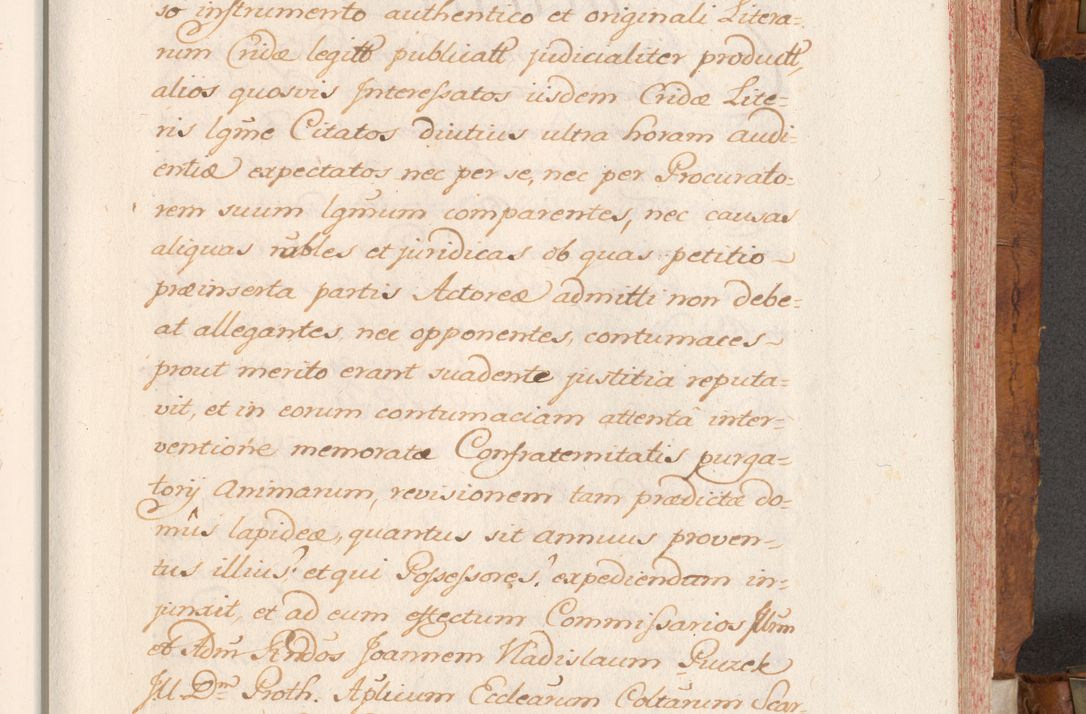 so instrumento authentico et originali Litera=
rum Cridæ legitt publicatt judicialiter productt,
alios quosvis Interessatos iisdem Cridæ Lite=
ris lgm̃e Citatos diutius ultra horam audi=
entiæ expectatos nec per se, nec per Procurato=
rem suum lgm̃um comparentes, nec causas
aliquas rñbles et juridicas ob quas petitio
præinserta partis Actoreæ admitti non debe=
at allegantes, nec opponentes, contumaces
prout merito erant suadente justitia reputa=
vit, et in eorum contumaciam attentâ inter=
ventione memoratæ Confraternitatis purga=
torij Animarum, revisionem tam prædictæ do=
mûs lapideæ, quantus sit annuus proven=
tus illius? et qui Possessores? expediendam in=
junxit, et ad eum effectum Commissarios Illrm
et Adm̃ Rndos Joannem Vladislaum Ruzek
JU Drm̃ Proth. Aplicum Ecclearum Coltarum Scar=